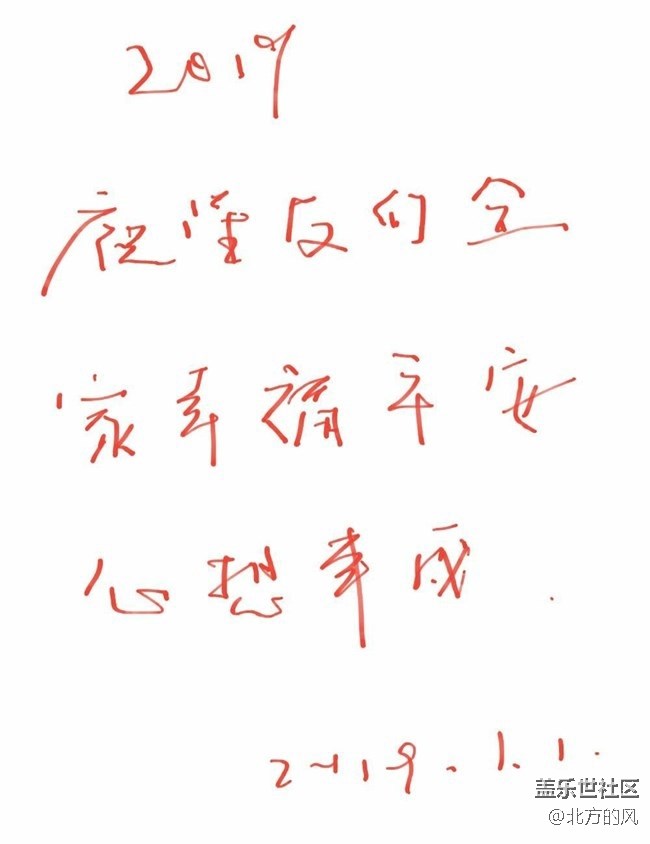 2019
祝星友们全
家幸福平安
心想事成.
2019.1.1.
盖乐世社区
@北方的风